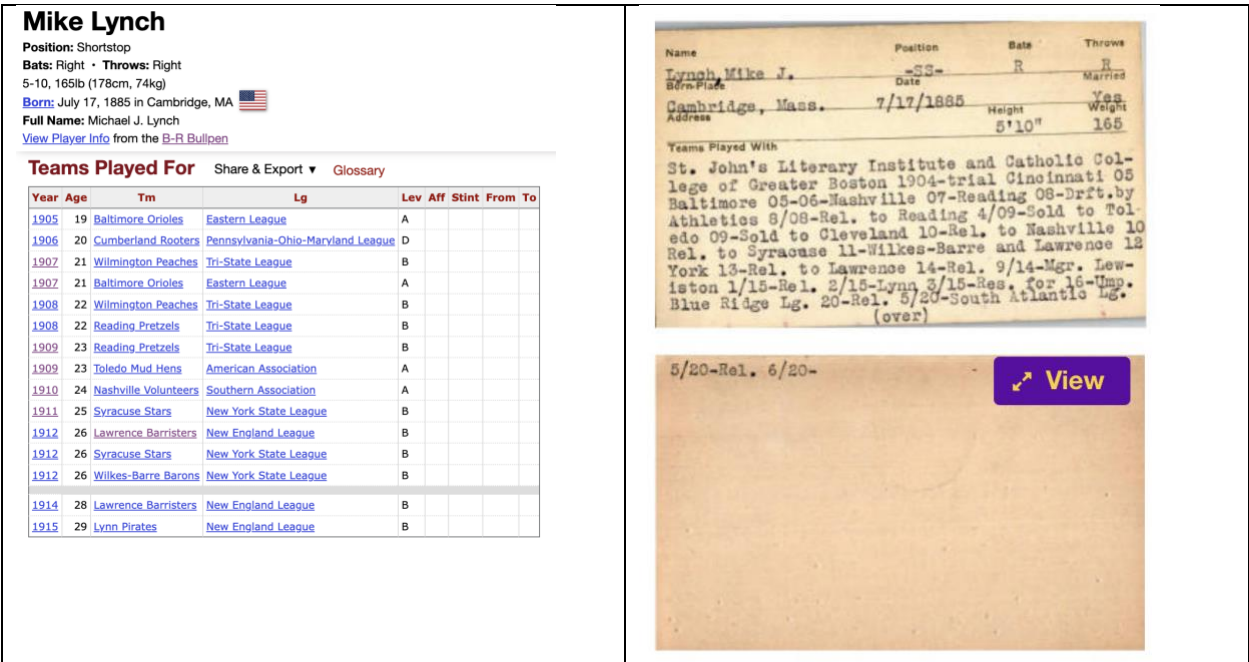 Mike Lynch
Position: Shortstop
Bats: Right • Throws: Right
5-10, 165lb (178cm, 74kg)
Born: July 17, 1885 in Cambridge, MA
Full Name: Michael J. Lynch
View Player Info from the B-R Bullpen
Teams Played For Share & Export ▼ Glossary
Year Age Tm Lg Lev Aff Stint From To
1905 19 Baltimore Orioles Eastern League A
1906 20 Cumberland Rooters Pennsylvania-Ohio-Maryland League D
1907 21 Wilmington Peaches Tri-State League B
1907 21 Baltimore Orioles Eastern League A
1908 22 Wilmington Peaches Tri-State League B
1908 22 Reading Pretzels Tri-State League B
1909 23 Reading Pretzels Tri-State League B
1909 23 Toledo Mud Hens American Association A
1910 24 Nashville Volunteers Southern Association A
1911 25 Syracuse Stars New York State League B
1912 26 Lawrence Barristers New England League B
1912 26 Syracuse Stars New York State League B
1912 26 Wilkes-Barre Barons New York State League B
1914 28 Lawrence Barristers New England League B
1915 29 Lynn Pirates New England League B
Name Position Bats Throws
Lynch, Mike J. -SS- R R
Born-Place Date Married
Cambridge, Mass. 7/17/1885 Yes
Address Height Weight
5'10" 165
Teams Played With
St. John's Literary Institute and Catholic Col-
lege of Greater Boston 1904-trial Cincinnati 05
Baltimore 05-06-Nashville 07-Reading 08-Drft.by
Athletics 8/08-Rel. to Reading 4/09-Sold to Tol-
edo 09-Sold to Cleveland 10-Rel. to Nashville 10
Rel. to Syracuse 11-Wilkes-Barre and Lawrence 12
York 13-Rel. to Lawrence 14-Rel. 9/14-Mgr. Lew-
iston 1/15-Rel. 2/15-Lynn 3/15-Res. for 16-Ump.
Blue Ridge Lg. 20-Rel. 5/20-South Atlantic Lg.
(over)
5/20-Rel. 6/20-
View